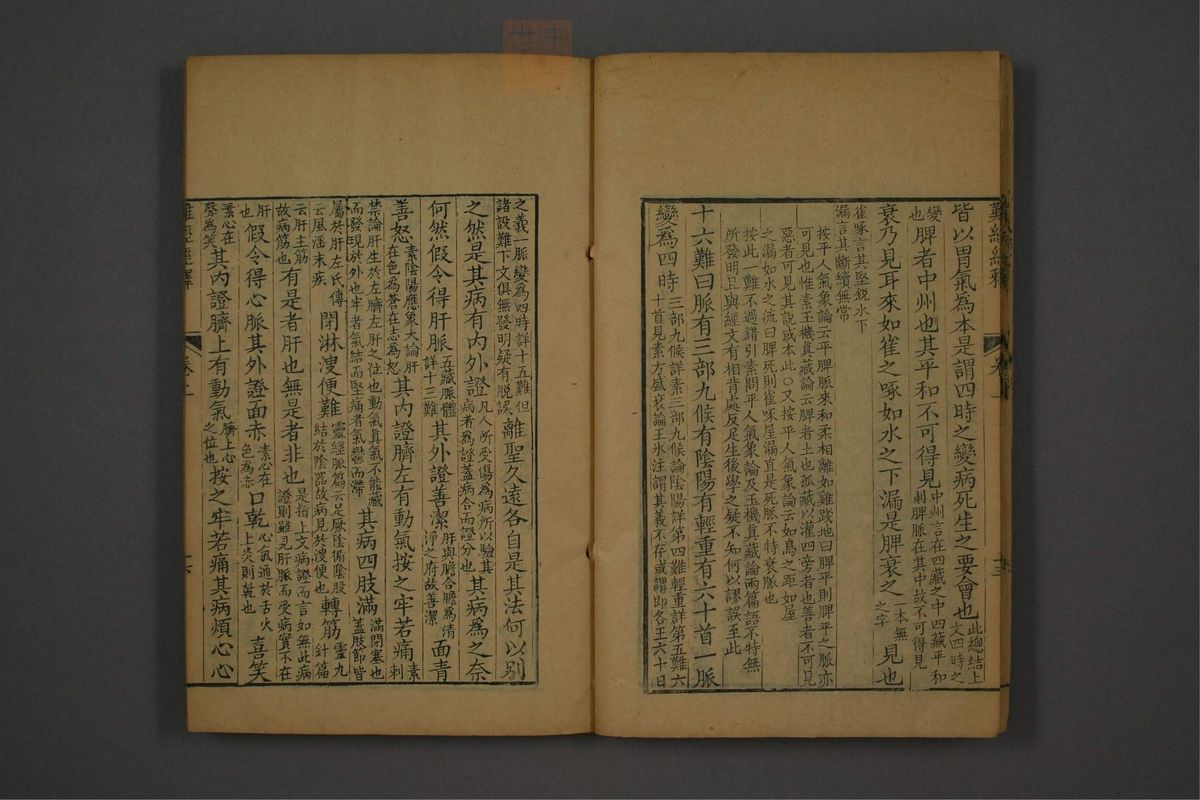 難經經釋
皆以胃氣為本是謂四時之變病死生之要會也此總結上文四時之
變也脾者中州也其平和不可得見中州言在四藏之中四藏平和則脾脈在其中故不可得見
衰乃見耳來如雀之啄如水之下漏是脾衰之本無之字見也
雀啄言其堅銳水下漏言其斷續無常
按平人氣象論云平脾脈來和柔相離如雞踐地曰脾平則脾平之脈亦
可見也惟素玉機真藏論云脾者土也孤藏以灌四旁者也善者不可見
惡者可見其說或本此〇又按平人氣象論云如鳥之距如屋
之漏如水之流曰脾死則雀啄屋漏直是死脈不特衰脈也
按此一難不過錯引素問平人氣象論及玉機真藏論兩篇語不特無
所發明且與經文有相背處反足生後學之疑不知何以謬誤至此
十六難曰脈有三部九候有陰陽有輕重有六十首一脈
變為四時三部九候詳素三部九候論陰陽詳第四難輕重詳第五難六十首見素方盛衰論王氷注謂其義不存或謂即各王六十日
之義一脈變為四時詳十五難但諸設難下文俱無發明疑有脫誤離聖久遠各自是其法何以別
之然是其病有內外證凡人所受傷為病所以驗其病者為證蓋病合而證分也其病為之奈
何然假令得肝脈五藏脈體詳十三難其外證善潔肝與膽合膽為清淨之府故善潔面青
善怒素陰陽應象大論肝在色為蒼在志為怒其內證臍左有動氣按之牢若痛素刺
禁論肝生於左臍左肝之位也動氣真氣不能藏而發現於外也牢者氣結而堅痛者氣鬱而滯其病四肢滿滿閉塞也蓋肢節皆
屬於肝左氏傳云風淫末疾閉淋溲便難靈經脈篇云足厥陰循陰股結於陰器故病見於溲便也轉筋靈九針篇
云肝主筋故病筋也有是者肝也無是者非也是指上文病證而言如無此病證則雖見肝脈而受病實不在
肝也假令得心脈其外證面赤素心在色為赤口乾心氣通於舌火上炎則乾也喜笑
素心在聲為笑其內證臍上有動氣臍上心之位也按之牢若痛其病煩心心
難經經釋
卷上